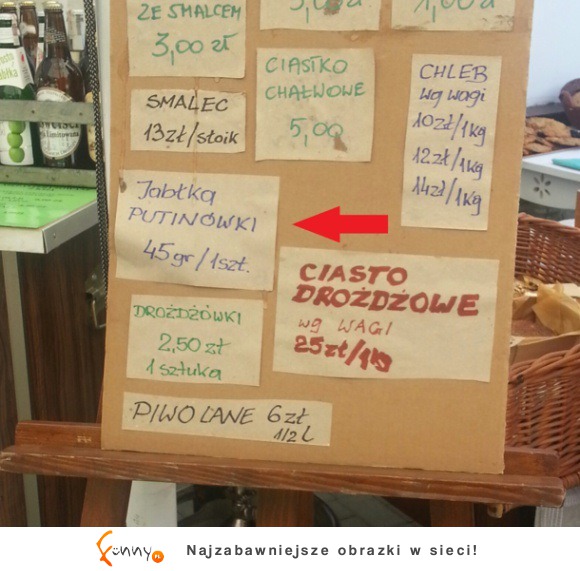 ZE SMALCEM
3,00 zł
5,00 zł
1,00 zł
CIASTKO
CHAŁWOWE
5,00
SMALEC
13zł/słoik
CHLEB
wg wagi
10zł/1kg
12zł/1kg
14zł/1kg
Jabłka
PUTINÓWKI
45gr/1szt.
CIASTO
DROŻDŻOWE
wg WAGI
25zł/1kg
DROŻDŻÓWKI
2,50 zł
1 sztuka
PIWO LANE 6zł
1/2 L
funny.pl
Najzabawniejsze obrazki w sieci!